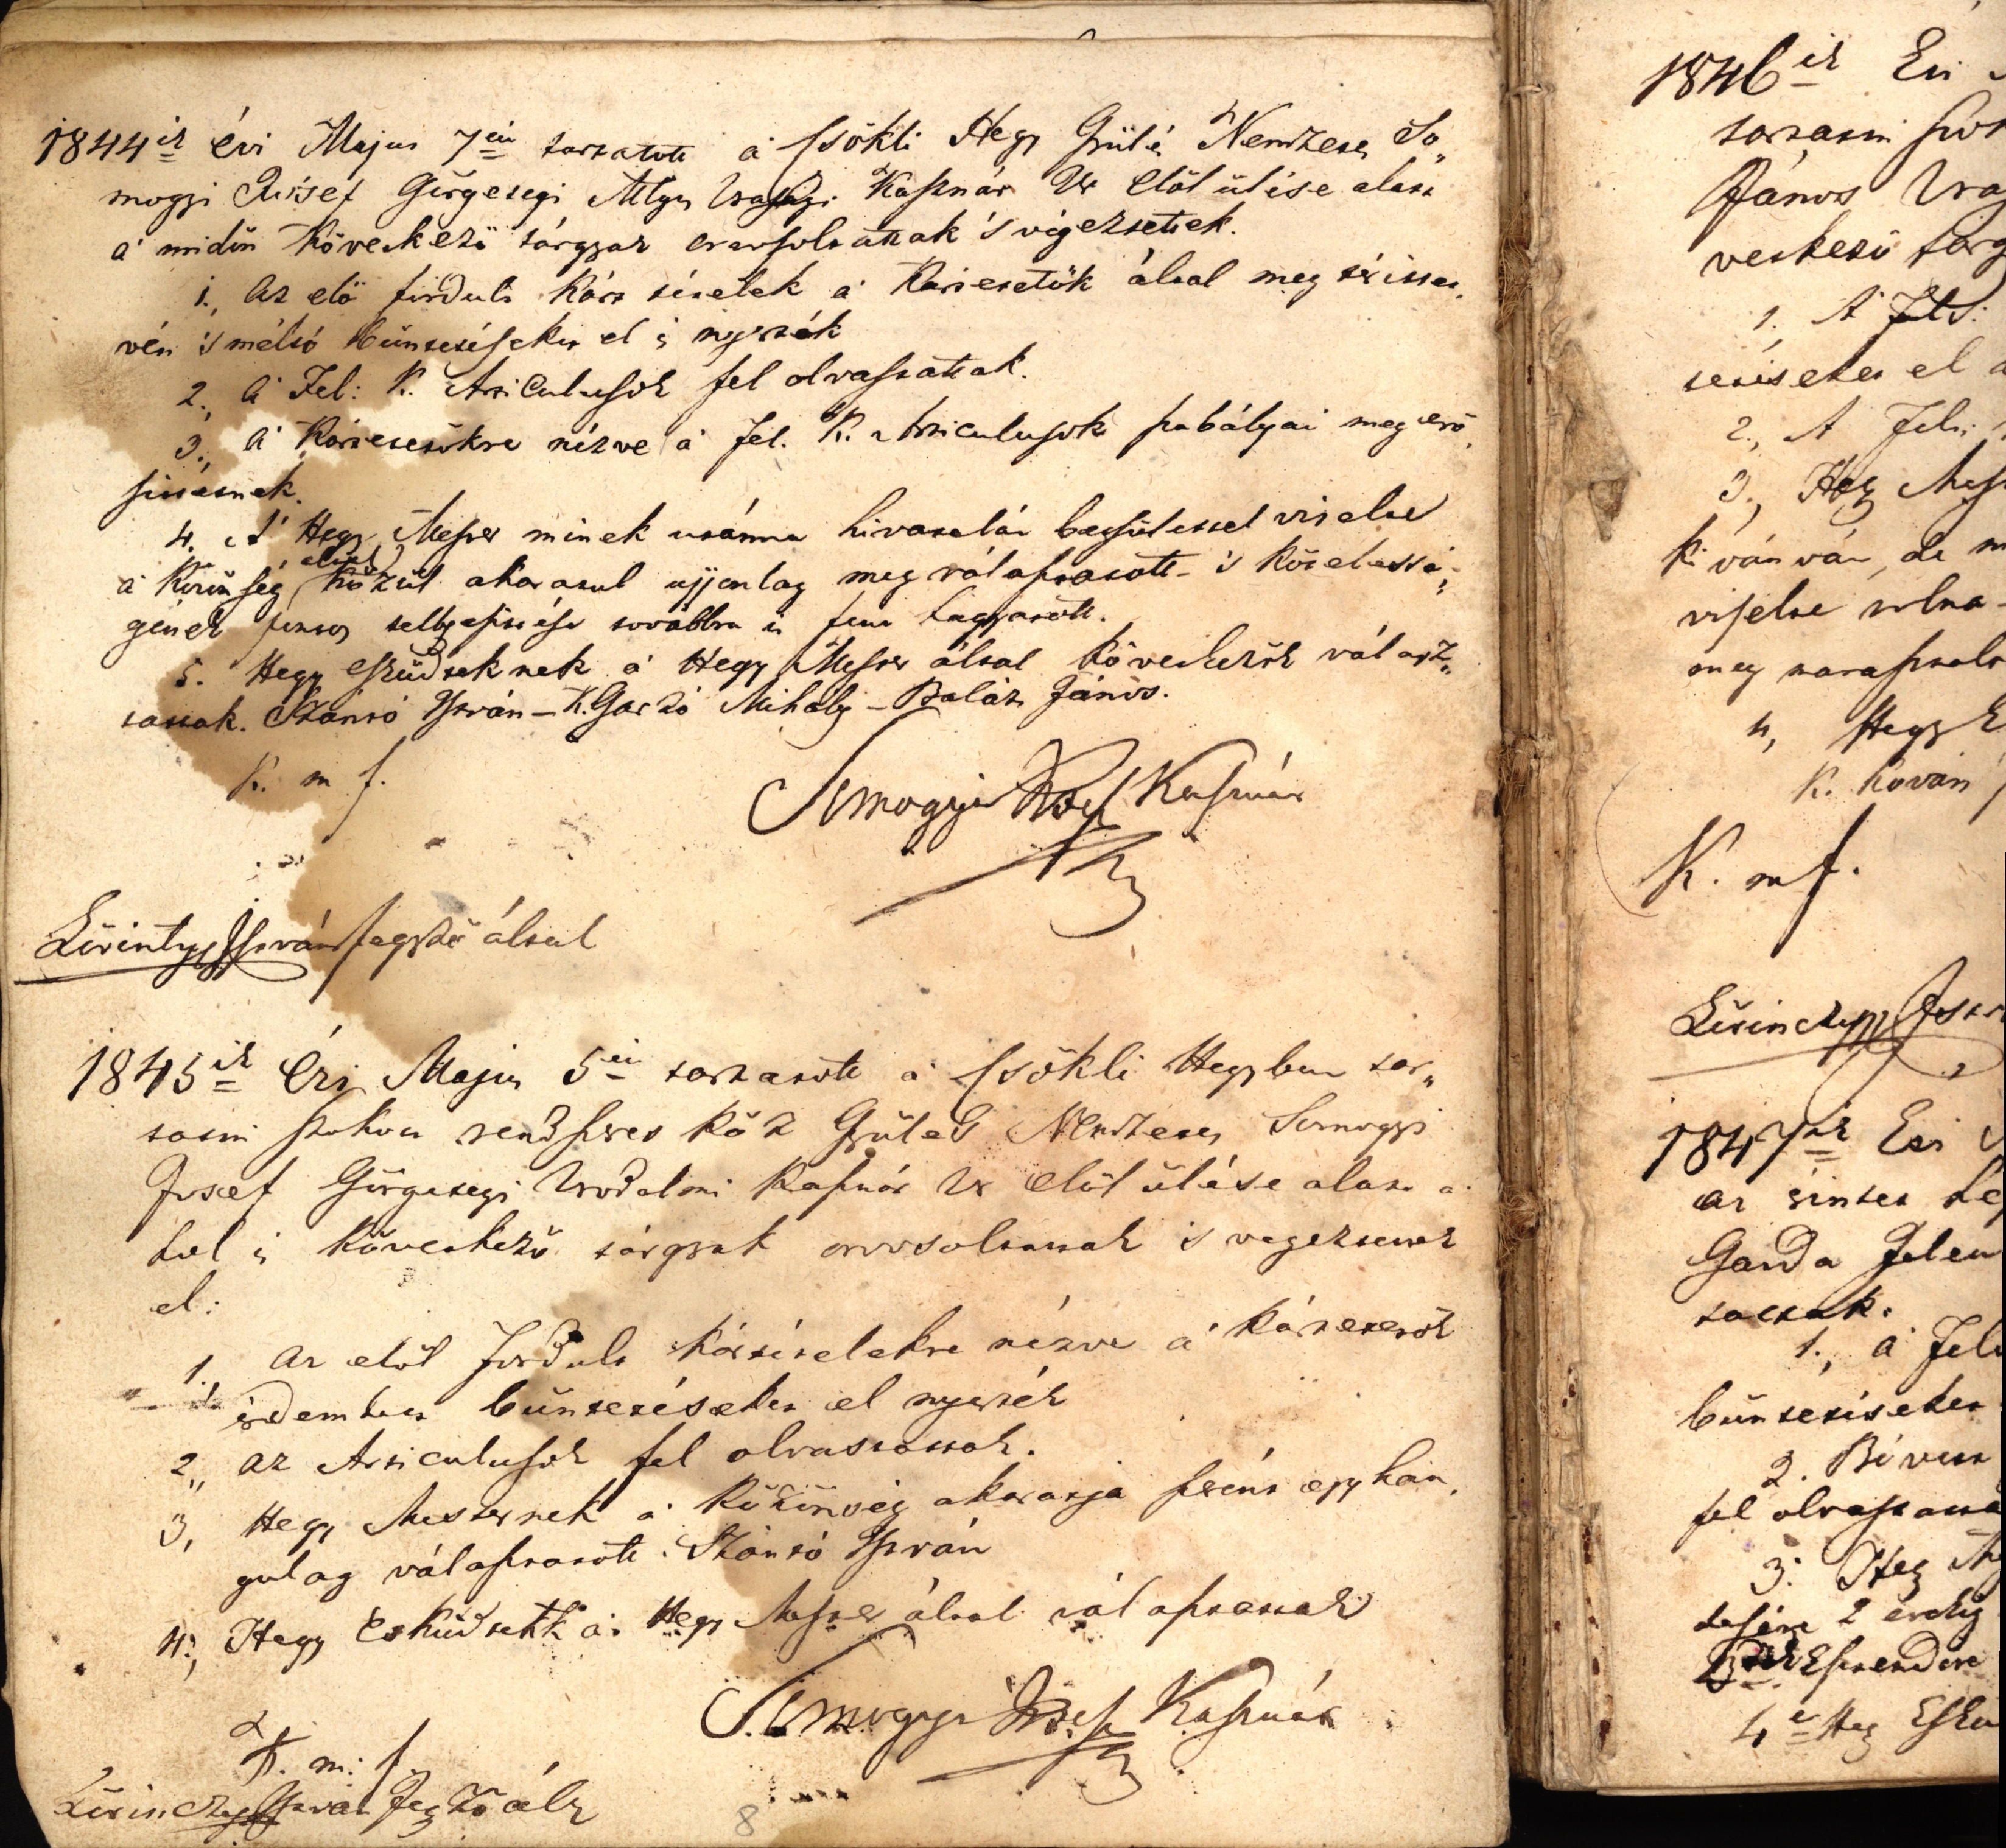 1844ik évi Majus 7én tartatott a' Csökli Hegy Gyülés Nemzetes So„
mogyi Josef Görgetegi Mlgos Urasági Kasznár Ur Elöl ülése alatt
a' midön következö tárgyak orvosoltattak 's végeztettek.
1., Az elö fordult kárr tételek a' Kártevök által meg téríttet„
vén 's méltó büntetéseket el is nyerték
2., A' Fel: K. Articulusok fel olvastattak.
3., A' Kártevökre nézve a' Fel. K. Articulusok szabályai meg erö„
síttetnek.
4. A' Hegy Mester minek utánna hivatalát betsülettel viselte
a' Község által közül akaratul ujjonlag meg választatott - 's kötelessé„
gének pontos teljesítésére továbbra is fenn hagyatott.
5. Hegy Esküdteknek a' Hegy Mester által következök válasz„
tattak. Szántó István – K. Garzó Mihály – Baláz János.
K. m. f.
Somogyi Josef Kasznár
Lörintzy István jegyzö által
1845ik Évi Majus 5én tartatott a' Csökli Hegyben tar„
tatni szokott rendszeres köz Gyülés Nemzetes Somogyi
Josef Görgetegi Urodalmi Kasznár Ur Elöl ülése alatt a'
hol is következö tárgyak orvosoltattak 's végeztettek
el:
1., Az elöl fordult kártételekre nézve a' kártevök
érdemlett büntetéseket el nyerték
2., Az Articulusok fel olvastattak.
3, Hegy Mesternek a' közönség akaratja szerént egyhan„
gulag választatott: Szántó István
4., Hegy Esküdtekk a' Hegy Mester által választattak
Somogyi Josef Kasznár
K. m: f.
Lörinczy István Jegyzö által
8
1846ik Évi
tartatni szok
János Urag
vetkezö tárg
1. A'
tetéseket el
2., A Fel:
3, Hegy Mest
kívánván, de m
viselte volna
meg marasztalt
4, Hegy E
K. Kován
K. m f.
Lörinczy Istv
1847ik Évi
az érintett he
Garda Jelen
tattak.
1., a' Fel
büntetéseket
2. Bé vett
fel olvastatt
3. Hegy
2 erdeig
4er Hegy Eskü